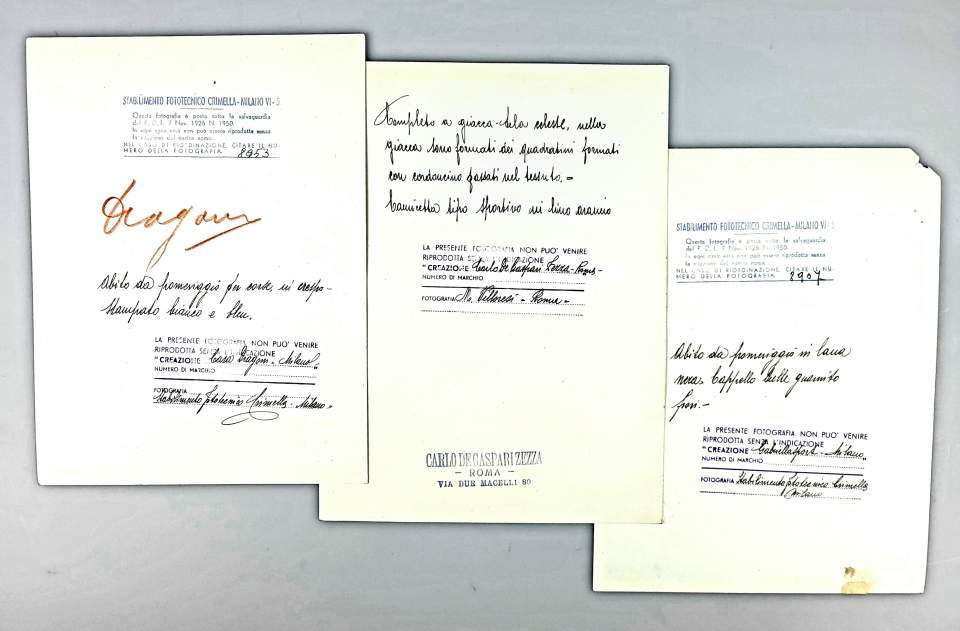 STABILIMENTO FOTOTECNICO CRIMELLA - MILANO VI - 5
Questa fotografia è posta sotto la salvaguardia
del F. D. L. 7 Nov. 1926 N. 1950.
In ogni caso essa non può essere riprodotta senza
la citazione del nostro nome.
NEL CASO DI RIORDINAZIONE, CITARE IL NU-
MERO DELLA FOTOGRAFIA 8953
Dragoni
Abito da pomeriggio per corse, in crespo-
stampato bianco e bleu.
LA PRESENTE FOTOGRAFIA NON PUO' VENIRE
RIPRODOTTA SENZA L'INDICAZIONE
"CREAZIONE Casa Dragoni - Milano "
NUMERO DI MARCHIO
FOTOGRAFIA
Stabilimento fototecnico Crimella - Milano -
Completo a giacca - tela celeste, nella
giacca sono formati dei quadratini formati
con cordoncino passati nel tessuto. -
Camicetta tipo sportivo in lino arancio
LA PRESENTE FOTOGRAFIA NON PUO' VENIRE
RIPRODOTTA SENZA L'INDICAZIONE
"CREAZIONE Carlo De Gaspari Zezza - Roma - "
NUMERO DI MARCHIO
FOTOGRAFIA - Roma -
CARLO DE GASPARI ZEZZA
- ROMA -
VIA DUE MACELLI 80
STABILIMENTO FOTOTECNICO CRIMELLA - MILANO VI - 5
Questa fotografia è posta sotto la salvaguardia
del F. D. L. 7 Nov. 1926 N. 1950.
In ogni caso essa non può essere riprodotta senza
la citazione del nostro nome.
NEL CASO DI RIORDINAZIONE, CITARE IL NU-
MERO DELLA FOTOGRAFIA 8907
Abito da pomeriggio in lana
nera. Cappello guarnito
fiori. -
LA PRESENTE FOTOGRAFIA NON PUO' VENIRE
RIPRODOTTA SENZA L'INDICAZIONE
"CREAZIONE Gabriellasport - Milano "
NUMERO DI MARCHIO
FOTOGRAFIA Stabilimento fototecnico Crimella
Milano